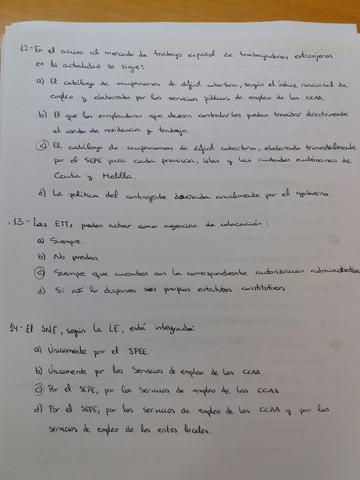 12.- En el acceso al mercado de trabajo español de trabajadores extranjeros
en la actualidad se sigue:
a) El catálogo de ocupaciones de difícil cobertura, según el índice nacional de
empleo y elaborado por los servicios públicos de empleo de las CCAA.
b) El que los empleadores que deseen contratarlos puedan tramitar directamente
el visado de residencia y trabajo.
c) El catálogo de ocupaciones de difícil cobertura, elaborado trimestralmente
por el SEPE para cada provincia, islas y las ciudades autónomas de
Ceuta y Melilla.
d) La política del contingente anualmente por el gobierno.
13.- Las ETTs pueden actuar como agencias de colocación:
a) Siempre.
b) No pueden.
c) Siempre que cuenten con la correspondiente autorización administrativa
d) Si así lo disponen sus propios estatutos constitutivos
14.- El SNE, según la LE, está integrado:
a) Únicamente por el SPEE.
b) Únicamente por los Servicios de empleo de las CCAA.
c) Por el SEPE, por los Servicios de empleo de las CCAA
d) Por el SEPE, por los servicios de empleo de las CCAA y por los
servicios de empleo de los entes locales.